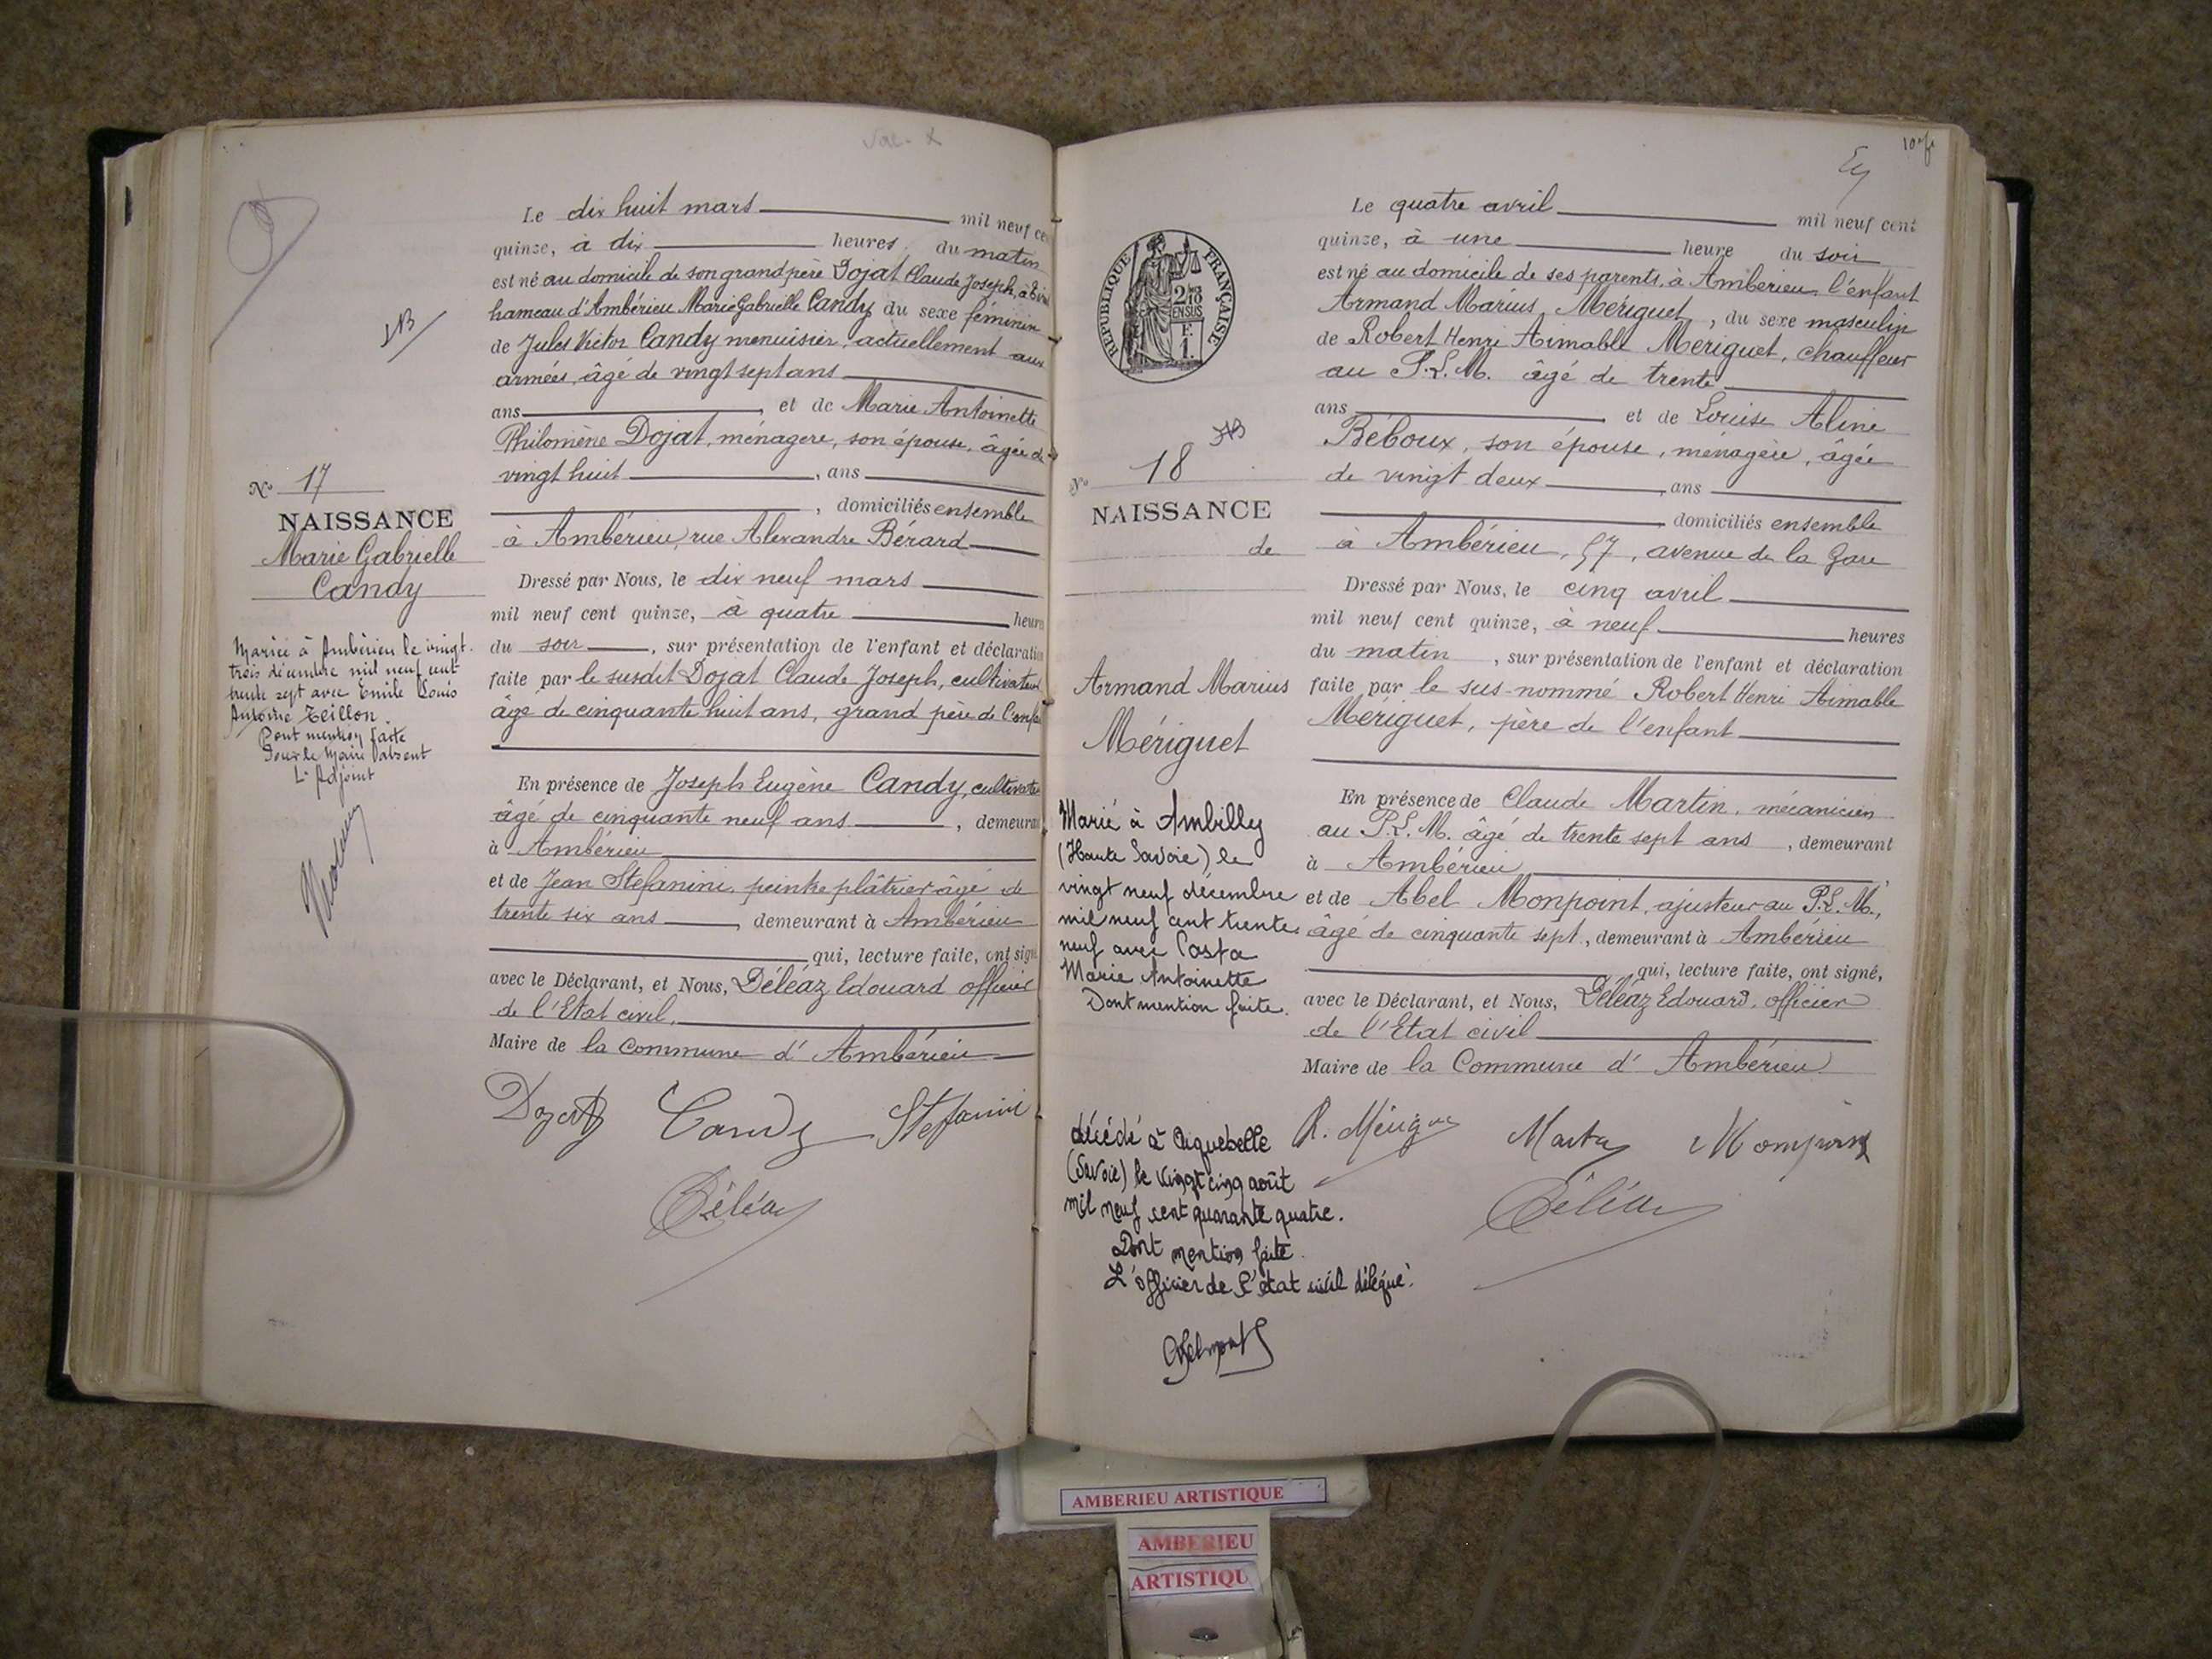 Le dix huit mars mil neuf ce
quinze, à dix heures du matin
est né au domicile de son grand père Dojat Claude Joseph, à
hameau d'Ambérieu Marie Gabrielle Candy du sexe féminin
de Jules Victor Candy menuisier, actuellement aux
armées, âgé de vingt sept ans
ans, et de Marie Antoinette
Philomène Dojat, ménagère, son épouse, âgée de
vingt huit, ans
, domiciliés ensemble
à Ambérieu, rue Alexandre Bérard
Dressé par Nous, le dix neuf mars
mil neuf cent quinze, à quatre heures
du soir, sur présentation de l'enfant et déclaration
faite par le susdit Dojat Claude Joseph, cultivateur
âgé de cinquante huit ans, grand père de l'enfa
En présence de Joseph Eugène Candy, cultivate
âgé de cinquante neuf ans, demeurant
à Ambérieu
et de Jean Stefanini, peintre plâtrier âgé de
trente six ans, demeurant à Ambérieu
qui, lecture faite, ont signé
avec le Déclarant, et Nous, Déléaz Edouard officier
de l'Etat civil,
Maire de la Commune d'Ambérieu
Candy Stefanini
Déléaz
N° 17
NAISSANCE
Marie Gabrielle
Candy
Mariée à Ambérieu le vingt
trois décembre mil neuf cent
trente sept avec Emile Louis
Antoine Teillon.
Dont mention faite
Pour le Maire absent
L'Adjoint
10
RÉPUBLIQUE FRANÇAISE
2/10 EN SUS
F.
1.
Le quatre avril mil neuf cent
quinze, à une heure du soir
est né au domicile de ses parents, à Ambérieu, l'enfant
Armand Marius Mériguet, du sexe masculin
de Robert Henri Aimable Meriguet, chauffeur
au P.L.M. âgé de trente
ans et de Louise Aline
Béboux, son épouse, ménagère, âgée
de vingt deux, ans
domiciliés ensemble
à Ambérieu, 57, avenue de la Gare
Dressé par Nous, le cinq avril
mil neuf cent quinze, à neuf heures
du matin, sur présentation de l'enfant et déclaration
faite par le sus-nommé Robert Henri Aimable
Mériguet, père de l'enfant
En présence de Claude Martin, mécanicien
au P.L.M. âgé de trente sept ans, demeurant
à Ambérieu,
et de Abel Monpoint, ajusteur au P.L.M.,
âgé de cinquante sept, demeurant à Ambérieu
qui, lecture faite, ont signé,
avec le Déclarant, et Nous, Déléaz Edouard, officier
de l'Etat civil
Maire de la Commune d'Ambérieu
Déléaz
N° 18
NAISSANCE
de
Armand Marius
Mériguet
Marié à Ambilly
(Haute Savoie) le
vingt neuf décembre
mil neuf cent trente
neuf avec Costa
Marie Antoinette
Dont mention faite.
décédé à Aiguebelle
(Savoie) le vingt cinq août
mil neuf cent quarante quatre.
Dont mention faite.
L'officier de l'état civil délégué.
AMBERIEU ARTISTIQUE
AMBERIEU
ARTISTIQU